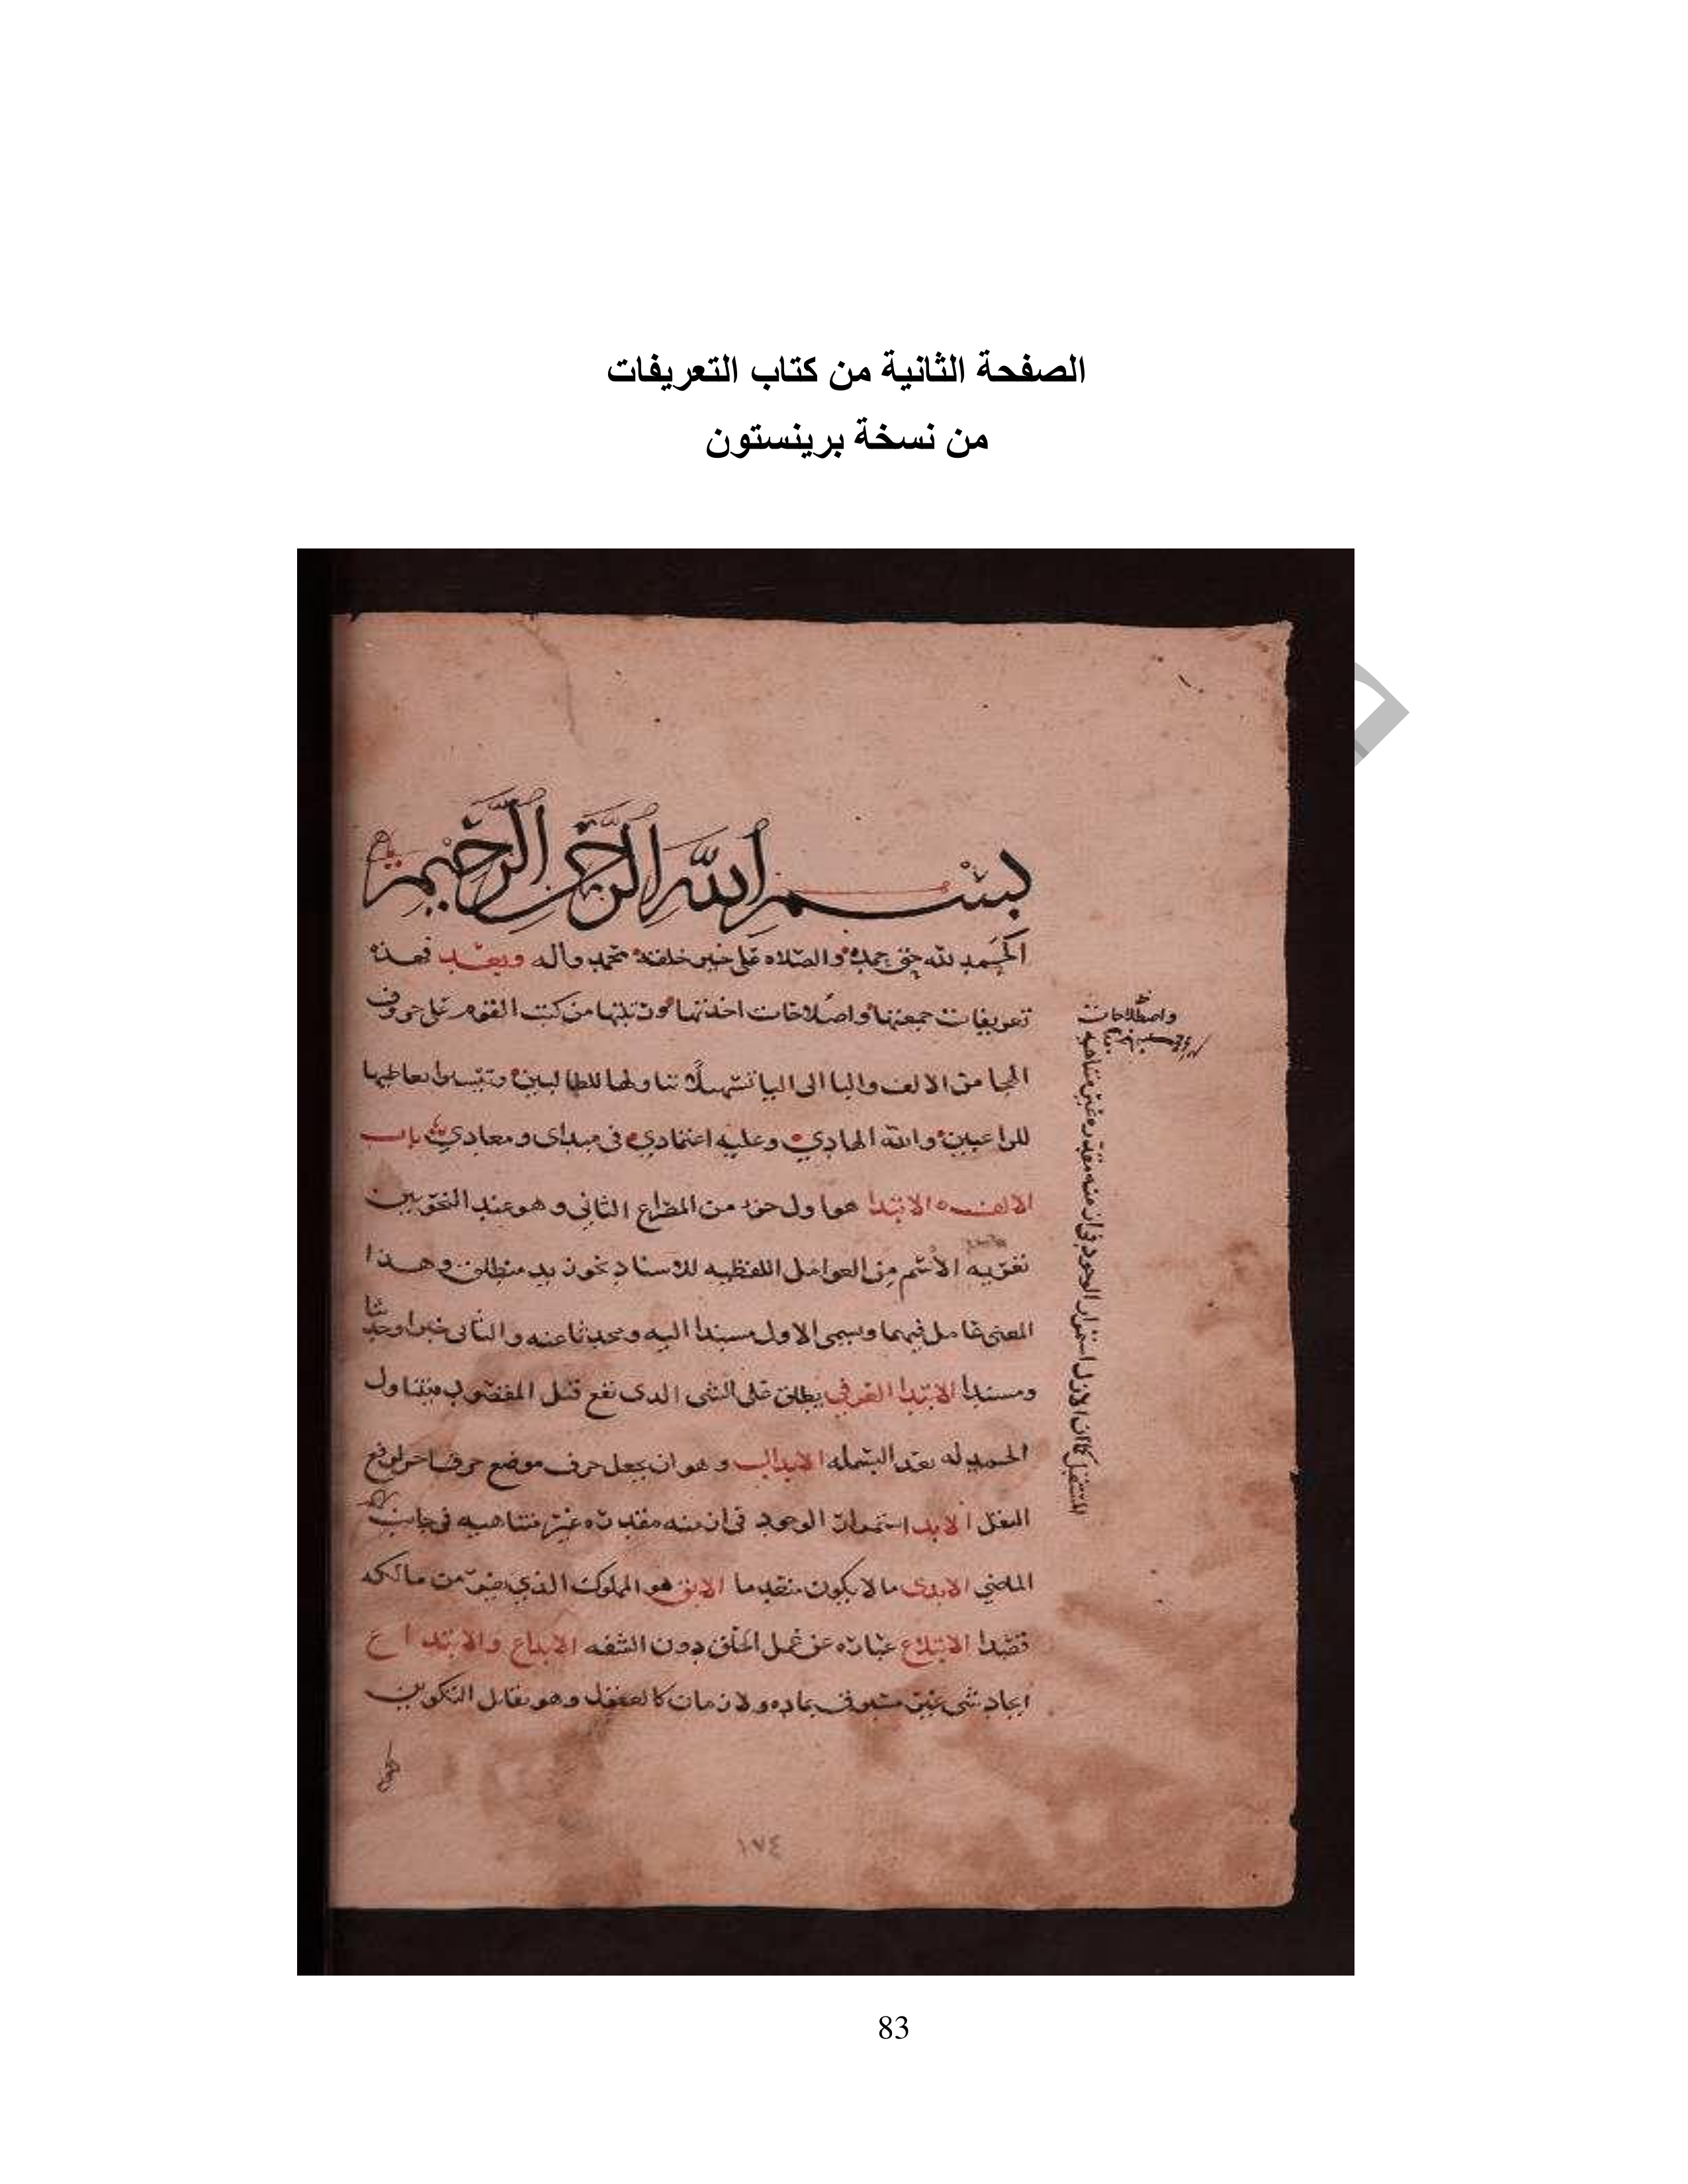 الصفحة الثانية من كتاب التعريفات
من نسخة برينستون
بسم الله الرحمن الرحيم
الحمد لله حق حمده والصلاه على خير خلقه محمد واله وبعد فهذه
تعريفات جمعتها واصلاحات اخذتها ورتبتها من كتب القوم على حروف
الهجا من الالف والبا الى اليا تسهيلا تناولها للطالبين وتيسرا تعاطيها
للراغبين والله الهادي وعليه اعتمادي في مبداى ومعادي باب
الالف الابتدا هو اول جزء من المصراع الثاني وهو عند النحويين
تعريه الاسم من العوامل اللفظيه للاسناد نحو زيد منطلق وهذا
المعنى عامل فيهما ويسمى الاول مسندا اليه ومحدثا عنه والثاني خبرا وحديثا
ومسندا الابتدا العرفي يطلق على الشى الذى يقع قبل المقصود فيتناول
الحمد له بعد البسمله الابدال وهو ان يجعل حرف موضع حرف اخر لدفع
الثقل الابد استمرار الوجود في ازمنه مقدره غير متناهيه في جانب
الماضي الابدى ما لا يكون منعدما الابق هو المملوك الذي يفر من مالكه
قصدا الابتلاع عباره عن عمل الحلق دون الشفه الابداع والابتداع
ايجاد شى غير مسبوق بماده ولا زمان كالعقل وهو يقابل التكوين
واصطلاحات
المستقبل كما ان الازل استمرار الوجود في ازمنه مقدره غير متناهيه
١٧٤
83